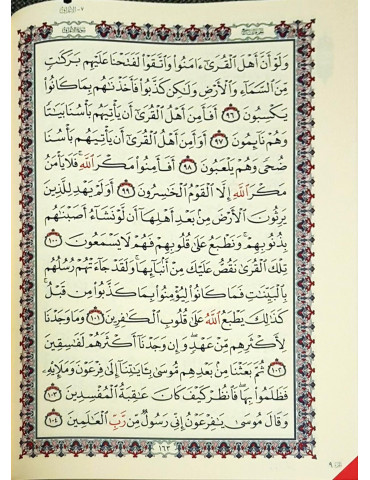 وَلَوْ أَنَّ أَهْلَ ٱلْقُرَىٰٓ ءَامَنُوا۟ وَٱتَّقَوْا۟ لَفَتَحْنَا عَلَيْهِم بَرَكَٰتٍ
مِّنَ ٱلسَّمَآءِ وَٱلْأَرْضِ وَلَٰكِن كَذَّبُوا۟ فَأَخَذْنَٰهُم بِمَا كَانُوا۟
يَكْسِبُونَ ٩٦ أَفَأَمِنَ أَهْلُ ٱلْقُرَىٰٓ أَن يَأْتِيَهُم بَأْسُنَا بَيَٰتًا
وَهُمْ نَآئِمُونَ ٩٧ أَوَأَمِنَ أَهْلُ ٱلْقُرَىٰٓ أَن يَأْتِيَهُم بَأْسُنَا
ضُحًى وَهُمْ يَلْعَبُونَ ٩٨ أَفَأَمِنُوا۟ مَكْرَ ٱللَّهِ فَلَا يَأْمَنُ
مَكْرَ ٱللَّهِ إِلَّا ٱلْقَوْمُ ٱلْخَٰسِرُونَ ٩٩ أَوَلَمْ يَهْدِ لِلَّذِينَ
يَرِثُونَ ٱلْأَرْضَ مِنۢ بَعْدِ أَهْلِهَآ أَن لَّوْ نَشَآءُ أَصَبْنَٰهُم
بِذُنُوبِهِمْ وَنَطْبَعُ عَلَىٰ قُلُوبِهِمْ فَهُمْ لَا يَسْمَعُونَ ١٠٠
تِلْكَ ٱلْقُرَىٰ نَقُصُّ عَلَيْكَ مِنْ أَنۢبَآئِهَا وَلَقَدْ جَآءَتْهُمْ رُسُلُهُم
بِٱلْبَيِّنَٰتِ فَمَا كَانُوا۟ لِيُؤْمِنُوا۟ بِمَا كَذَّبُوا۟ مِن قَبْلُ
كَذَٰلِكَ يَطْبَعُ ٱللَّهُ عَلَىٰ قُلُوبِ ٱلْكَٰفِرِينَ ١٠١ وَمَا وَجَدْنَا
لِأَكْثَرِهِم مِّنْ عَهْدٍ وَإِن وَجَدْنَآ أَكْثَرَهُمْ لَفَٰسِقِينَ
١٠٢ ثُمَّ بَعَثْنَا مِنۢ بَعْدِهِم مُّوسَىٰ بِـَٔايَٰتِنَآ إِلَىٰ فِرْعَوْنَ وَمَلَإِي۟هِۦ
فَظَلَمُوا۟ بِهَا فَٱنظُرْ كَيْفَ كَانَ عَٰقِبَةُ ٱلْمُفْسِدِينَ ١٠٣
وَقَالَ مُوسَىٰ يَٰفِرْعَوْنُ إِنِّى رَسُولٌ مِّن رَّبِّ ٱلْعَٰلَمِينَ ١٠٤
١٦٣